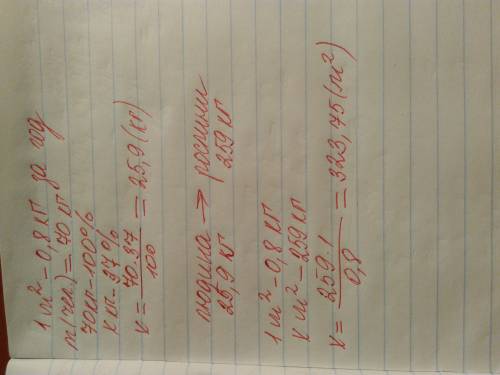 1 м² – 0,8 кг за год
m(чел.) = 70 кг
70 кг – 100%
х кг – 37%
х = 70·37 / 100 = 25,9 (кг)
людина → рослини
25,9 кг 259 кг
1 м² – 0,8 кг
х м² – 259 кг
х = 259·1 / 0,8 = 323,75 (м²)